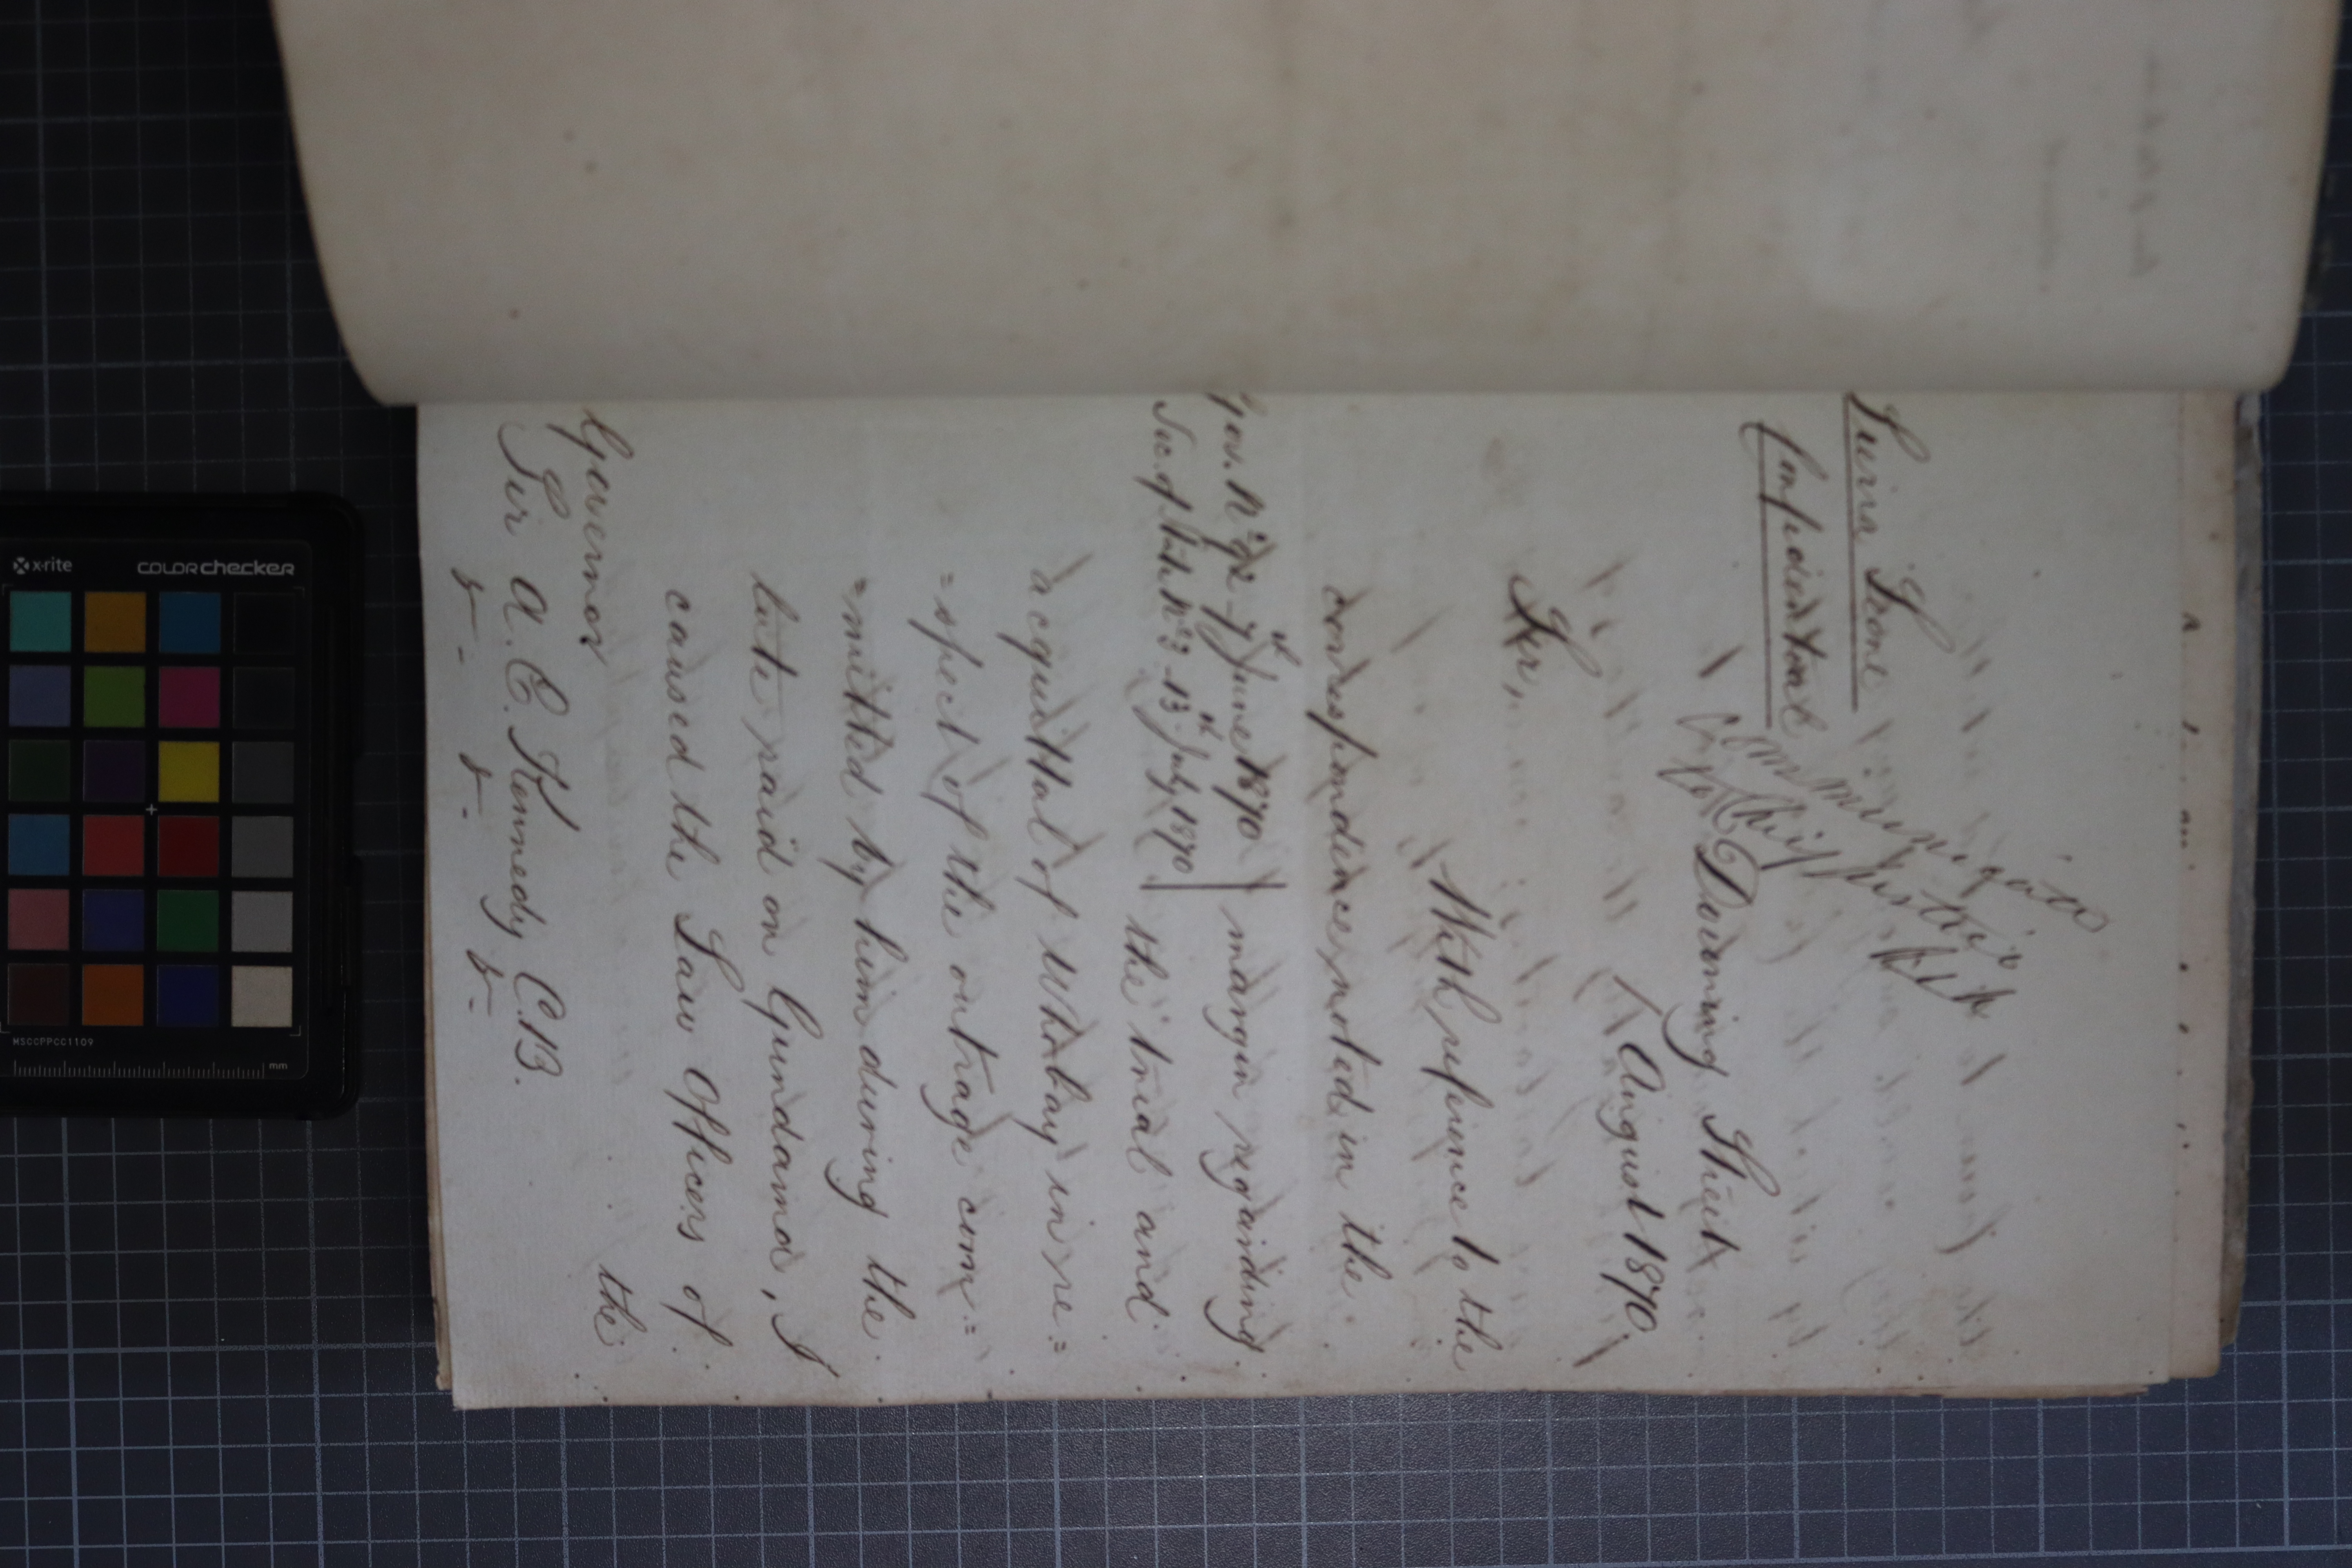 Sierra Leone
Confidential
Communicate
to Chief Justice
Downing Street
1 August 1870
Sir,
With reference to the
correspondence noted in the
Gov. No 92 - 7th June 1870
Sec. of State No 9 - 13th July 1870
margin regarding
the trial and
acquittal of Whabay in re=
=spect of the outrage com=
=mitted by him during the
late raid on Gundama, I
caused the Law Officers of
the
Governor
Sir A. E. Kennedy C.B.
&- &- &-
x-rite
colorchecker
MSCCPPCC1109
mm